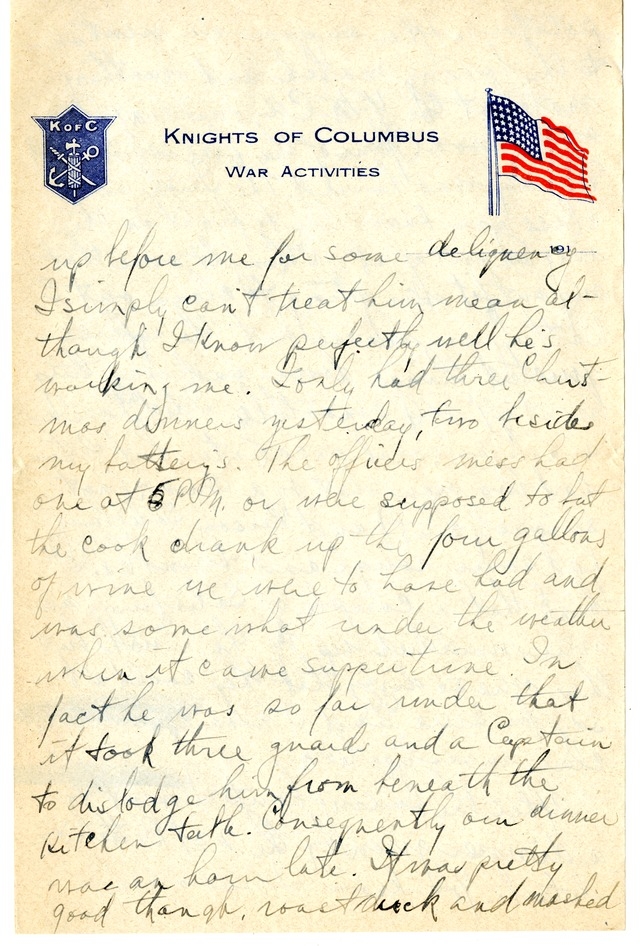 K of C
KNIGHTS OF COLUMBUS
WAR ACTIVITIES
191
up before me for some deliquency
I simply can't treat him mean al-
though I know perfectly well he's
working me. I only had three Christ-
mas dinners yesterday, two besides
my battery's. The officers mess had
one at 5 P.M. or were supposed to but
the cook drank up the four gallons
of wine we were to have had and
was some what under the weather
when it came suppertime. In
fact he was so far under that
it took three guards and a Captain
to dislodge him from beneath the
kitchen table. Consequently our dinner
was an hour late. It was pretty
good though, roast duck and mashed